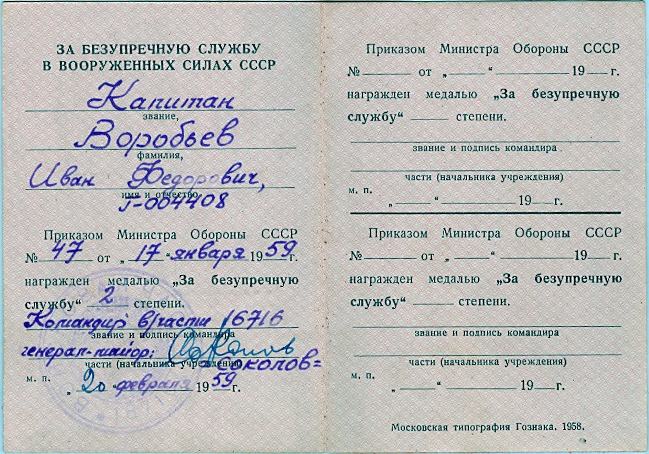 ЗА БЕЗУПРЕЧНУЮ СЛУЖБУ
В ВООРУЖЕННЫХ СИЛАХ СССР
Капитан
звание,
Воробьев
фамилия,
Иван Федорович,
имя и отчество
Г-004408
Приказом Министра Обороны СССР
№ 47 от „17“ января 1959г.
награжден медалью „За безупречную
службу“ 2 степени.
Командир в/части 16716
звание и подпись командира
генерал-майор: Соколов
части (начальника учреждения)
=Соколов=
м. п. „20“ февраля 1959 г.
Приказом Министра Обороны СССР
№ от „ “ 19 г.
награжден медалью „За безупречную
службу“ степени.
звание и подпись командира
части (начальника учреждения)
м. п.
„ “ 19 г.
Приказом Министра Обороны СССР
№ от „ “ 19 г.
награжден медалью „За безупречную
службу“ степени.
звание и подпись командира
части (начальника учреждения)
м. п. „ “ 19 г.
Московская типография Гознака. 1958.